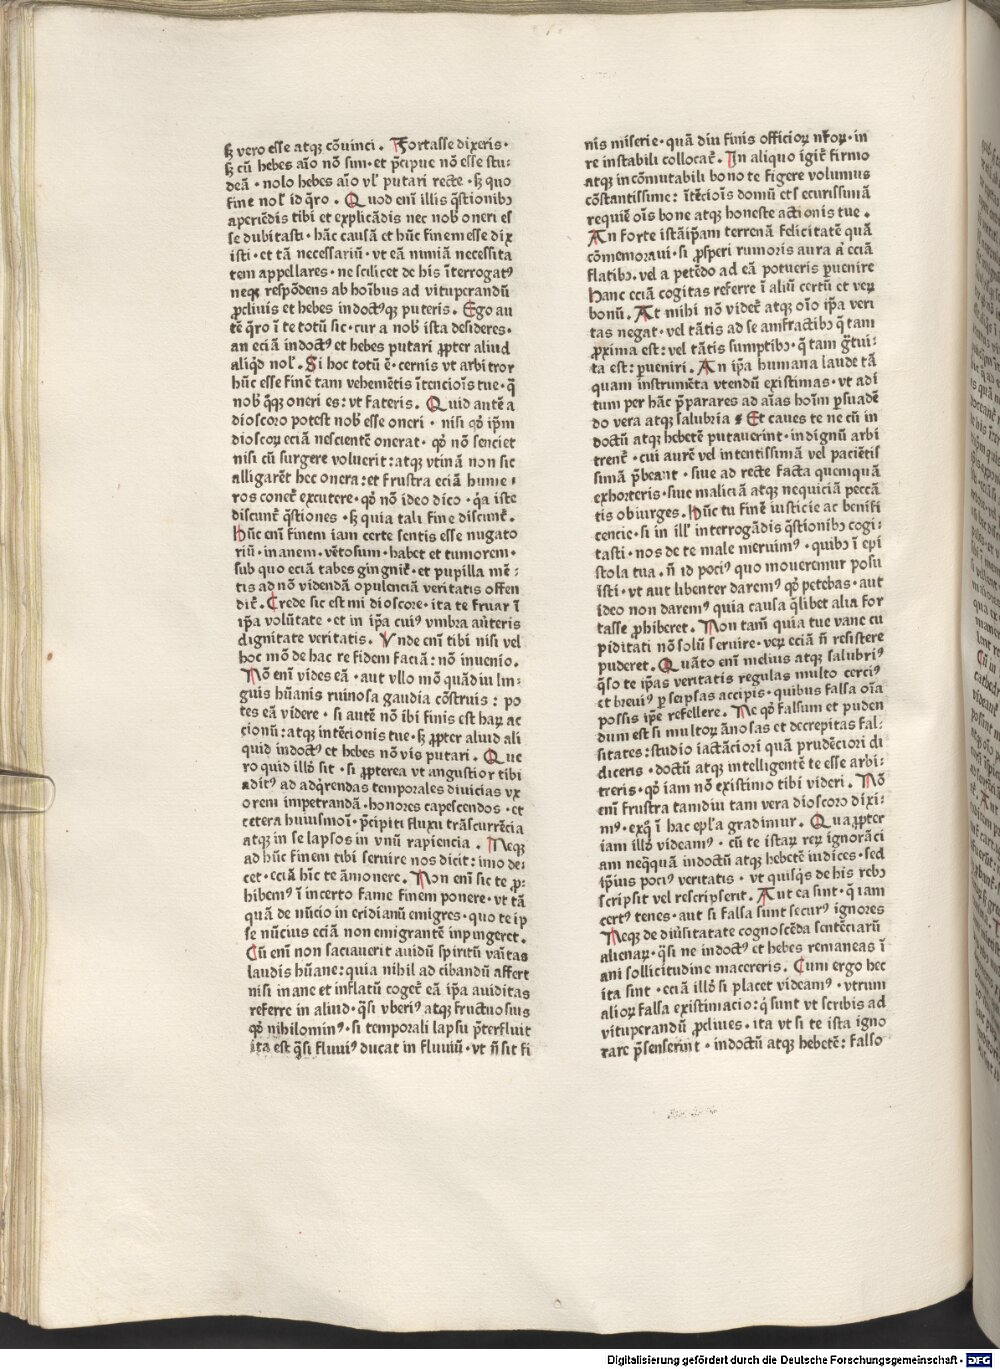 ꝫ vero esse atqꝫ cõuinci . Fortasse dixeris ·
ꝫ cũ hebes aĩo nõ sim · et p̃cipue nõ esse stu⸗
deã · nolo hebes aĩo vl᷑ putari recte · ꝫ quo
fine nol᷑ id q̃ro . Quod eni̅ illis q̃stionibꝰ
aperiẽdis tibi et explicãdis nec nob᷑ oneri es
se dubitasti · hãc causã et hũc finem esse dix
isti · et tã necessariũ · vt eã nimiã necessita
tem appellares · ne scilicet de his ĩterrogatꝰ
neqꝫ respõdens ab hoĩbus ad vituperandũ
ꝓcliuis et hebes indoctꝰqꝫ puteris . Ego au
tẽ q̃ro ĩ te totũ sic · cur a nob᷑ ista desideres ·
an eciã indoctꝰ et hebes putari ꝓpter aliud
aliq̇d nol᷑ . Si hoc totũ ẽ · cernis vt arbitror
hũc esse finẽ tam vehemẽtis ĩtencioĩs tue · q̃
nob᷑ q̃qꝫ oneri es : vt fateris . Quid autẽ a
dioscoro potest nob᷑ esse oneri · nisi qꝙ ip̃m
dioscoꝝ eciã nescientẽ onerat · qꝙ nõ senciet
nisi cũ surgere voluerit : atqꝫ vtinã non sic
alligarẽt hec onera : et frustra eciã hume ⸗
ros conet᷑ excutere · qꝙ nõ ideo dico · q̇a iste
discunt᷑ q̃stiones · ꝫ quia tali fine discunt᷑ .
Hũc eni̅ finem iam certe sentis esse nugato
riũ · inanem · vẽtosum · habet et tumorem ·
sub quo eciã tabes gingnit᷑ · et pupilla mẽ ⸗
tis ad nõ videndã opulenciã veritatis offen
dit᷑ . Crede sic est mi dioscore · ita te fruar ĩ
ip̃a volũtate · et in ip̃a cuiꝰ vmbra aũteris
dignitate veritatis . Vnde eni̅ tibi nisi vel
hoc mõ de hac re fidem faciã : nõ inuenio .
Nõ eni̅ vides eã · aut vllo mõ quãdiu lin⸗
guis hũanis ruinosa gaudia cõstruis : po
tes eã videre · si autẽ nõ ibi finis est haꝝ ac
cionũ : atqꝫ intẽcionis tue · ꝫ ꝓpter aliud ali
quid indoctꝰ et hebes nõ vis putari . Que
ro quid illo᷒ sit · si ꝓpterea vt angustior tibi
aditꝰ ad adq̇rendas temporales diuicias vx
orem impetrandã · honores capescendos · et
cetera huiusmoi᷑ · p̃cipiti fluxu trãscurrẽcia
atqꝫ in se lapsos in vnũ rapiencia . Neqꝫ
ad hũc finem tibi seruire nos dicit : imo de⸗
cet · eciã hĩc te ãmonere . Non eni̅ sic te ꝓ⸗
hibemꝰ ĩ incerto fame finem ponere · vt tã
quã de nũcio in eridianũ emigres · quo te ip
se nũcius eciã non emigrantẽ inpingeret .
Cũ eni̅ non saciauerit auidũ spiritũ vaĩtas
laudis hũane : quia nihil ad cibandũ affert
nisi inane et inflatũ cogit᷑ eã ip̃a auiditas
referre in aliud · q̃si vberiꝰ atqꝫ fructuosius
qꝙ nihilominꝰ · si temporali lapsu p̃terfluit
ita est q̃si fluuiꝰ ducat in fluuiũ · vt ñ sit fi
nis miserie · quã diu finis officioꝝ nr̃oꝝ · in
re instabili collocat᷑ . In aliquo igit᷑ firmo
atqꝫ incõmutabili bono te figere volumus
cõstantissime : ĩtẽcioĩs domũ et securissimã
requiẽ oĩs bone atqꝫ honeste actionis tue .
An forte istãip̃am terrenã felicitatẽ quã
cõmemoraui · si ꝓsperi rumoris aura aut eciã
flatibꝰ · vel a petẽdo ad eã potueris ꝑuenire
Hanc eciã cogitas referre ĩ aliũ certũ et veꝝ
bonũ . At mihi nõ videt᷑ atqꝫ oĩo ip̃a veri
tas negat · vel tãtis ad se amfractibꝰ q̃ tam
ꝓxima est : vel tãtis sumptibꝰ · q̃ tam gr̃tui⸗
ta est : ꝑueniri . An ip̃a humana laude tã
quam instrumẽta vtendũ existimas · vt adi
tum per hãc p̃parares ad aĩas hoĩm ꝑsuadẽ
do vera atqꝫ salubria ⁊ Et caues te ne cũ in
doctũ atqꝫ hebetẽ putauerint · indignũ arbi
trent᷑ · cui aurẽ vel intentissimã vel paciẽtis
simã p̃beant · siue ad recte facta quemquã
exhorteris · siue maliciã atqꝫ nequiciã peccã
tis obiurges . Hũc tu finẽ iusticie ac benifi
cencie · si in ill᷑ interrogãdis q̃stionibꝰ cogi⸗
tasti · nos de te male meruimꝰ · quibꝰ ĩ epi
stola tua · ñ id pociꝰ quo moueremur posu
isti · vt aut libenter daremꝰ qꝙ petebas · aut
ideo non daremꝰ quia causa q̃libet alia for
tasse ꝓhiberet . Non tam᷑ quia tue vane cu
piditati nõ solũ seruire · veꝝ eciã ñ resistere
puderet . Quãto eni̅ melius atqꝫ salubriꝰ
q̃so te ip̃as veritatis regulas multo cerciꝰ
et breuiꝰ ꝑ seipsas accipis · quibus falsa oĩa
possis ip̃e refellere . Ne qꝙ falsum et puden
dum est si multoꝝ ãnosas et decrepitas fal⸗
sitates : studio iactãciori quã prudẽciori di
diceris · doctũ atqꝫ intelligentẽ te esse arbi⸗
treris · qꝙ iam nõ existimo tibi videri . Nõ
eni̅ frustra tamdiu tam vera dioscoro dixi⸗
mꝰ · exq̃ ĩ hac epl̃a gradimur . Quaꝓpter
iam illo᷒ videamꝰ · cũ te istaꝝ reꝝ ignorãci
am neq̃quã indoctũ atqꝫ hebetẽ iudices · sed
ip̃ius pociꝰ veritatis · vt quisq̃s de his rebꝰ
scripsit vel rescripserit . Aut ea sint · q̃ iam
certꝰ tenes · aut si falsa sunt securꝰ ignores
Neqꝫ de diũsitatate cognoscẽda sentẽciarũ
alienaꝝ · q̃si ne indoctꝰ et hebes remaneas ĩ
ani sollicitudine macereris . Cum ergo hec
ita sint · eciã illo᷒ si placet videamꝰ · vtrum
alioꝝ falsa existimacio : q̃ sunt vt scribis ad
vituperandũ ꝓcliues · ita vt si te ista igno
rare p̃senserint · indoctũ atqꝫ hebetẽ : falso
Digitalisierung gefördert durch die Deutsche Forschungsgemeinschaft - DFG